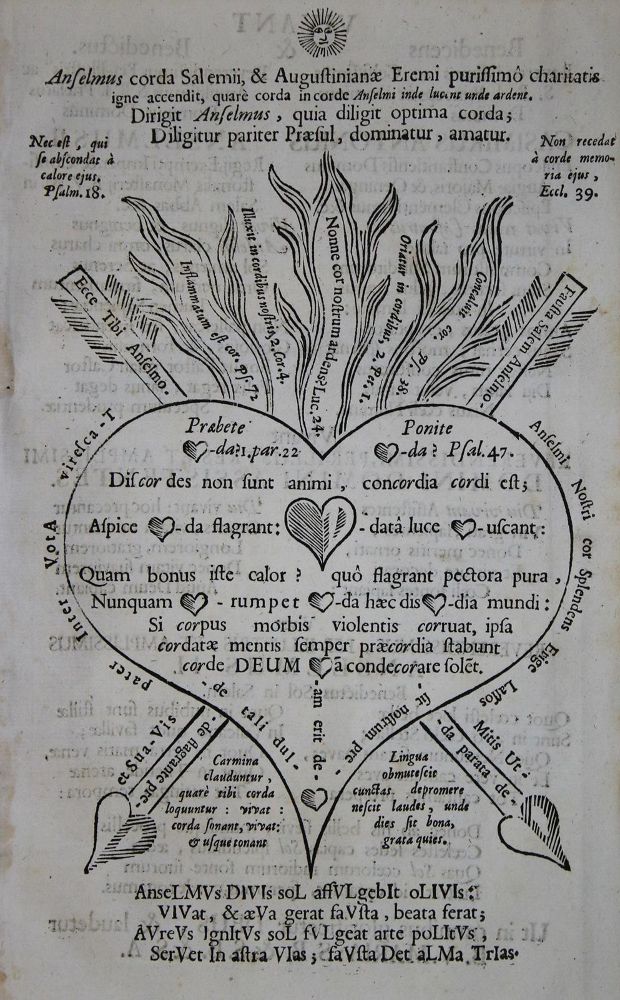 Anselmus corda Salemii, & Augustinianæ Eremi purissimô charitatis
igne accendit, quarè corda in corde Anselmi inde lucent unde ardent.
Dirigit Anselmus, quia diligit optima corda;
Diligitur pariter Præsul, dominatur, amatur.
Nec est, qui
se abscondat à
calore ejus.
Psalm. 18.
Non recedat
à corde memo-
ria ejus,
Eccl. 39.
Inflammatum est cor. Ps. 72
Illuxit in cordibus nostris 2. Cor. 4.
Nonne cor nostrum ardens? Luc. 24.
Oriatur in cordibus, 2. Pet. 1.
Concaluit cor. Ps. 38.
Ecce Tibi Anselmo.
Facula Salem Anselmo.
Præbete
-da? 1. par. 22
Ponite
-da? Psal. 47.
Discor des non sunt animi, concordia cordi est;
Aspice -da flagrant: -datâ luce -uscant:
Quam bonus iste calor? quô flagrant pectora pura,
Nunquam -rumpet -da hæc dis -dia mundi:
Si corpus morbis violentis corruat, ipsa
cordatæ mentis semper præcordia stabunt
corde DEUM -ā condecorare solēt.
Anselmi Nostri cor Splendens Erige Lassos
Mitis Ut-
-da parata de-
et Sua-Vis pater Inter VotA viresca-T
de flagrante pre-
de tali dul-
am erit de-
sic nostrum pre
Carmina
clauduntur,
quarè tibi corda
loquuntur: vivat:
corda sonant, vivat:
& usque tonant
Lingua
obmutescit
cunctas depromere
nescit laudes, unde
dies sit bona,
grata quies.
AnseLMVs DIVIs soL affVLgebIt oLIVIs:
VIVat, & æVa gerat faVsta, beata ferat;
AVreVs IgnItVs soL fVLgeat arte poLItVs,
SerVet In astra VIas; faVsta Det aLMa TrIas.